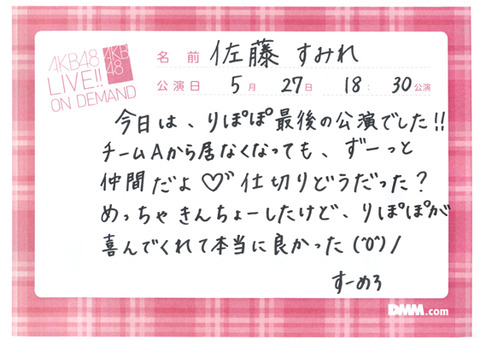 AKB48
LIVE!!
ON DEMAND
AKB
48
名前 佐藤 すみれ
公演日 5月 27日 18:30公演
今日は、りぽぽ最後の公演でした!!
チームAから居なくなっても、ずーっと
仲間だよ♡" 仕切りどうだった?
めっちゃきんちょーしたけど、りぽぽが
喜んでくれて本当に良かった(^o^)/
すーめろ
DMM.com